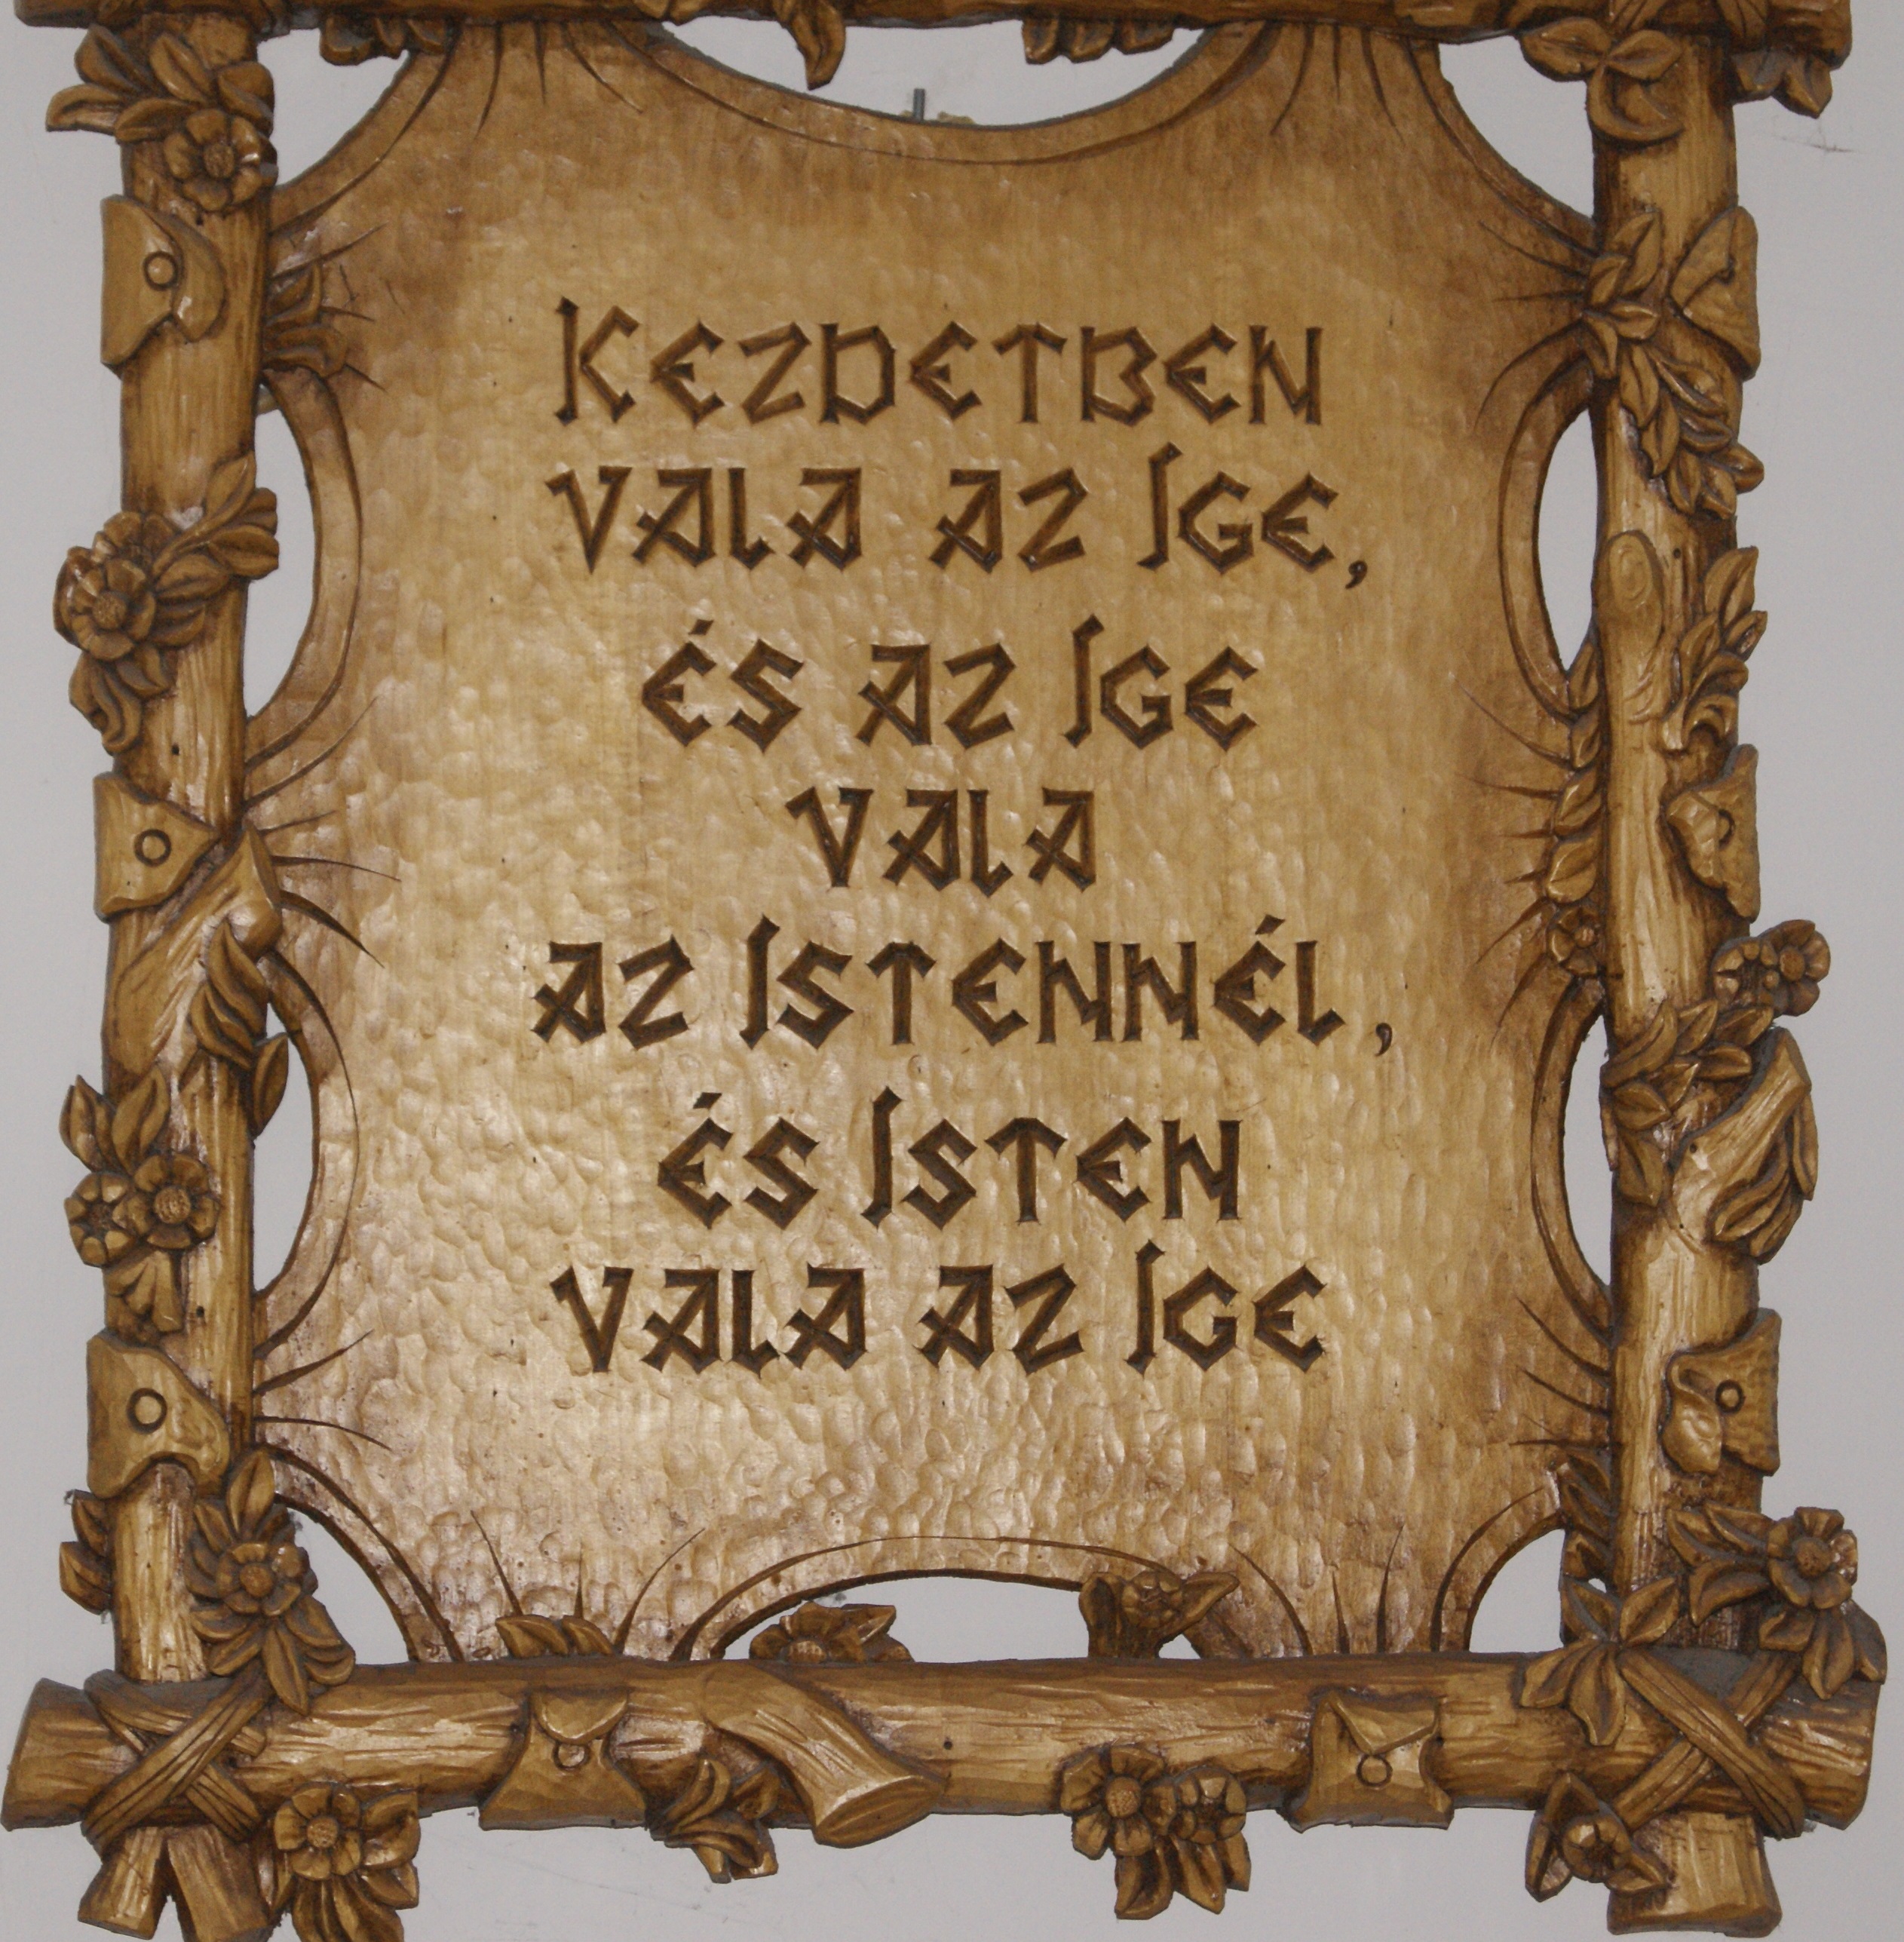 KEZDETBEN
VALA AZ IGE,
ÉS AZ IGE
VALA
AZ ISTENNÉL,
ÉS ISTEN
VALA AZ IGE